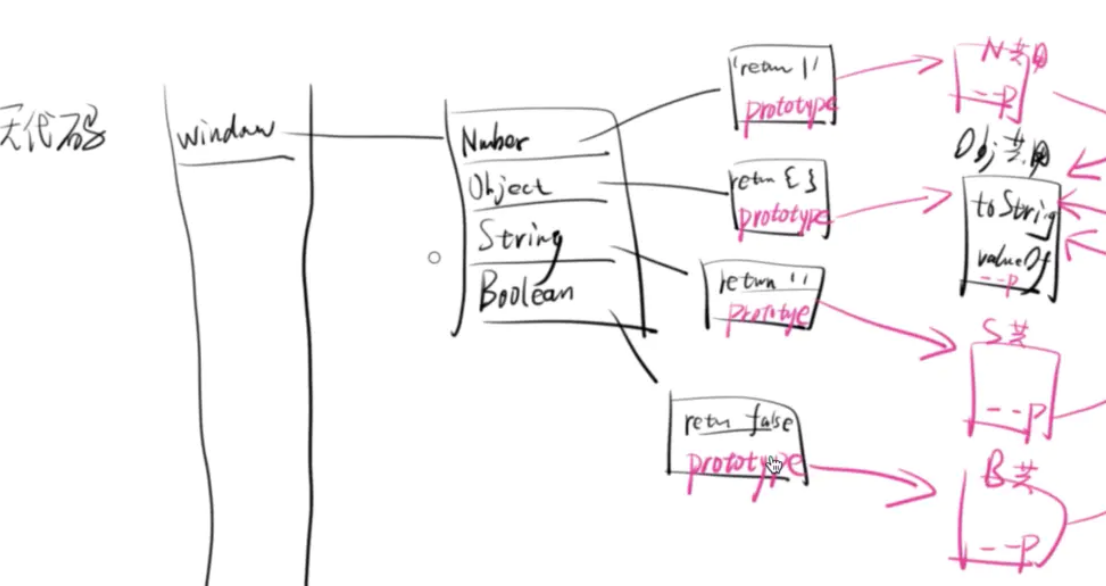 无代码
window
Number
Object
String
Boolean
'return 1'
prototype
return { }
prototype
return ' '
prototye
retn false
prototype
N共
--P
Obj共
toString
valueOf
--P
S共
--P
B共
--P